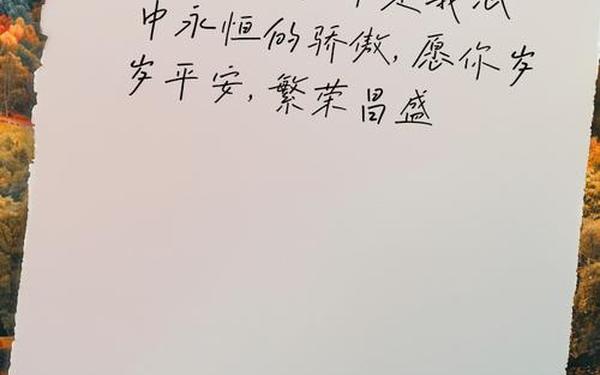 中永恒的骄傲，愿你岁
岁平安，繁荣昌盛